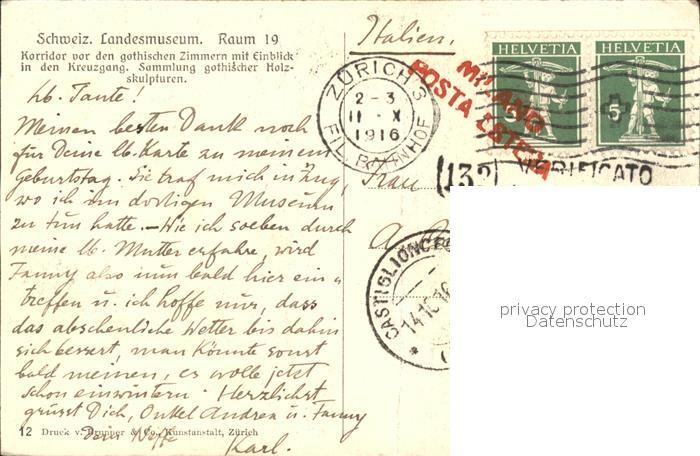 Schweiz. Landesmuseum. Raum 19
Korridor vor den gothischen Zimmern mit Einblick
in den Kreuzgang. Sammlung gothischer Holz-
skulpturen.
lb. Tante!
Meinen besten Dank noch
für Deine lb. Karte zu meinem
Geburtstag. Sie traf mich in Zug,
wo ich im dortigen Museum
zu tun hatte. – Wie ich soeben durch
meine lb. Mutter erfahre, wird
Fanny also nun bald hier ein-
treffen u. ich hoffe nur, dass
das abscheuliche Wetter bis dahin
sich bessert, man könnte sonst
bald meinen, es wolle jetzt
schon einwintern. Herzlichst
grüsst Dich, Onkel Andrea u. Fanny
Dein Neffe
Karl.
12 Druck v. Brunner & Co., Kunstanstalt, Zürich
Italien.
ZÜRICH 8
2-3
11 · X
1916
FIL. BAHNHOF
MILANO
POSTA ESTERA
HELVETIA
5
HELVETIA
5
(132) VERIFICATO
Frau
CASTIGLIONCE
14.10.16
privacy protection
Datenschutz